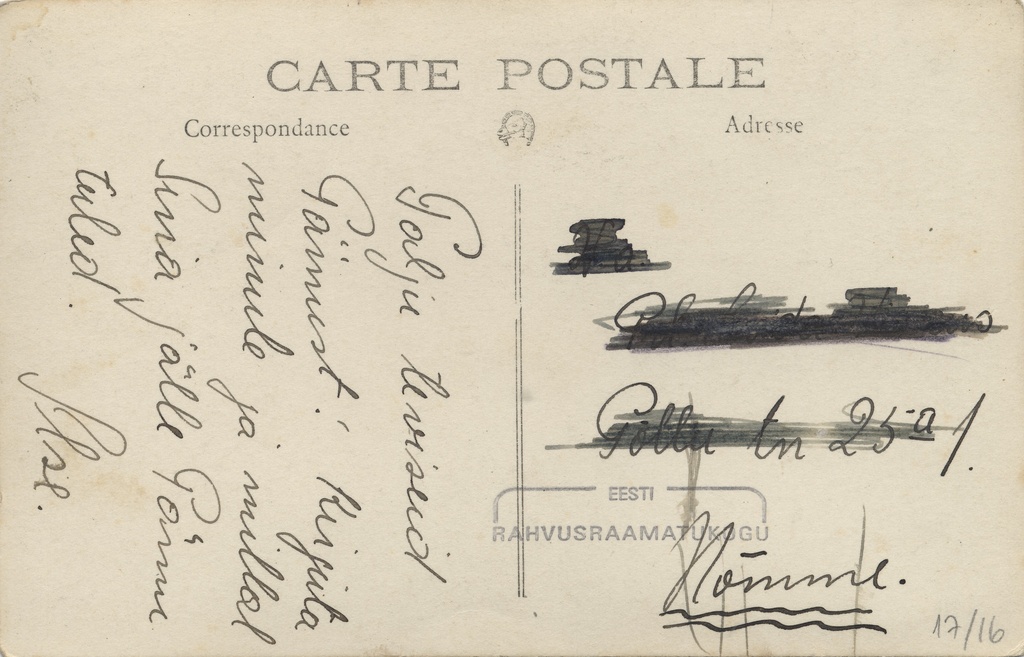 CARTE POSTALE
Correspondance
Adresse
Palju terviseid
Pärnust. Kirjuta
minule ja millal
Sina jälle Pärnu
tuled.
Ilse.
Põllu tn 25a/.
Nõmme.
EESTI
RAHVUSRAAMATUKOGU
17/16